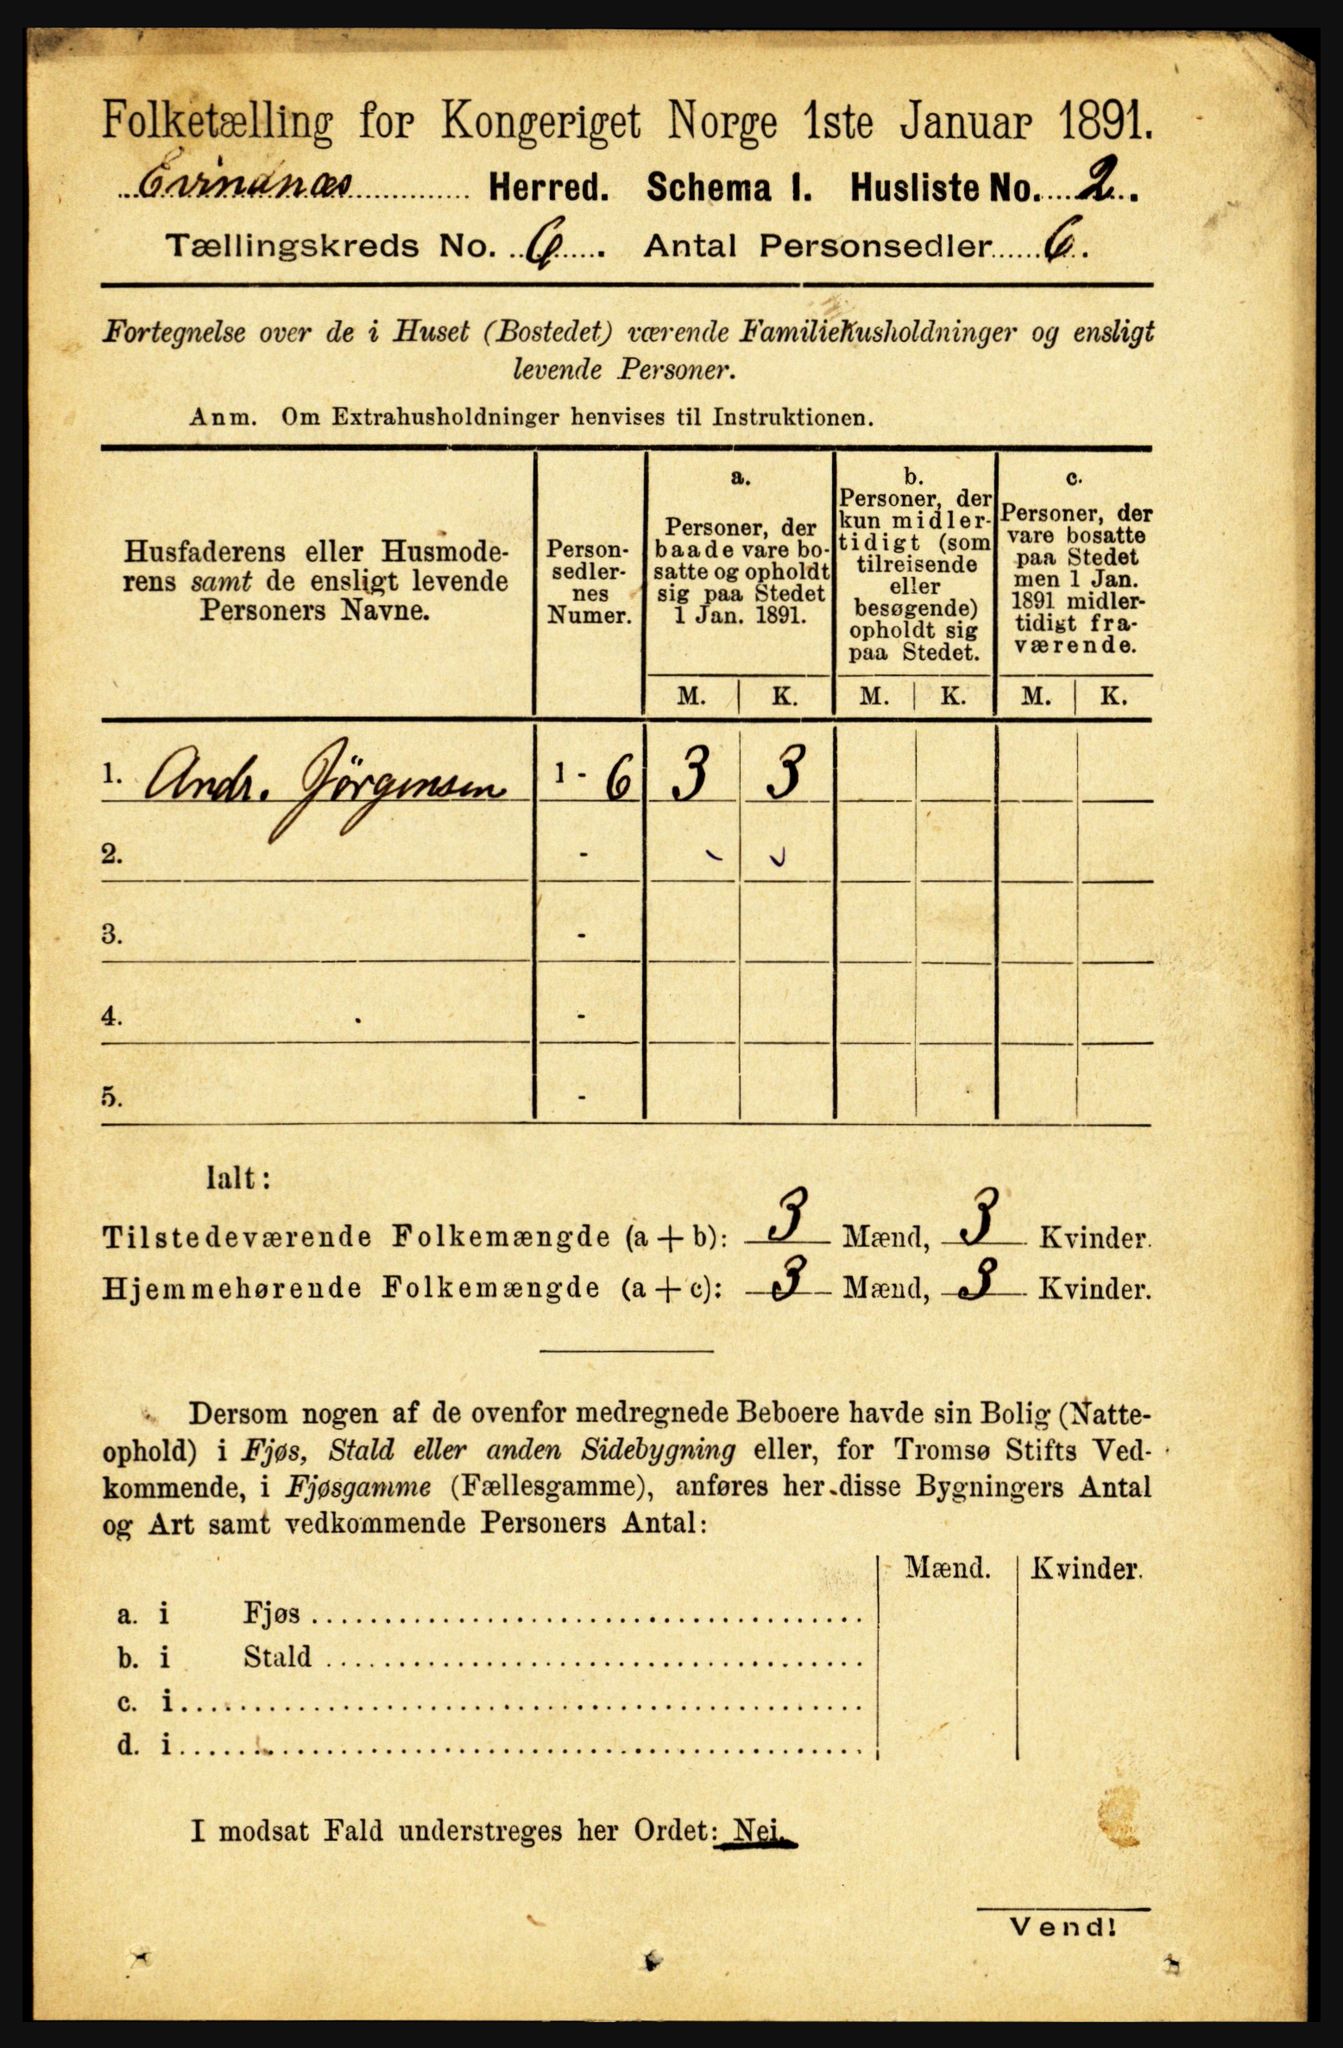 Folketælling for Kongeriget Norge 1ste Januar 1891.
Evindnæs Herred. Schema 1. Husliste No. 2.
Tællingskreds No. 6. Antal Personsedler 6.
Fortegnelse over de i Huset (Bostedet) værende Familiehusholdninger og ensligt
levende Personer.
Anm. Om Extrahusholdninger henvises til Instruktionen.
Husfaderens eller Husmode-
rens samt de ensligt levende
Personers Navne.
Person-
sedler-
nes
Numer.
a.
Personer, der
baade vare bo-
satte og opholdt
sig paa Stedet
1 Jan. 1891.
b.
Personer, der
kun midler-
tidigt (som
tilreisende
eller
besøgende)
opholdt sig
paa Stedet.
c.
Personer, der
vare bosatte
paa Stedet
men 1 Jan.
1891 midler-
tidigt fra-
værende.
M. K. M. K. M. K.
1. Andr. Jörgensen 1 - 6 3 3
2. -
3. -
4. -
5. -
Ialt:
Tilstedeværende Folkemængde (a + b): 3 Mænd, 3 Kvinder.
Hjemmehørende Folkemængde (a + c): 3 Mænd, 3 Kvinder.
Dersom nogen af de ovenfor medregnede Beboere havde sin Bolig (Natte-
ophold) i Fjøs, Stald eller anden Sidebygning eller, for Tromsø Stifts Ved-
kommende, i Fjøsgamme (Fællesgamme), anføres her disse Bygningers Antal
og Art samt vedkommende Personers Antal:
Mænd. Kvinder.
a. i Fjøs
b. i Stald
c. i
d. i
I modsat Fald understreges her Ordet: Nei.
Vend!